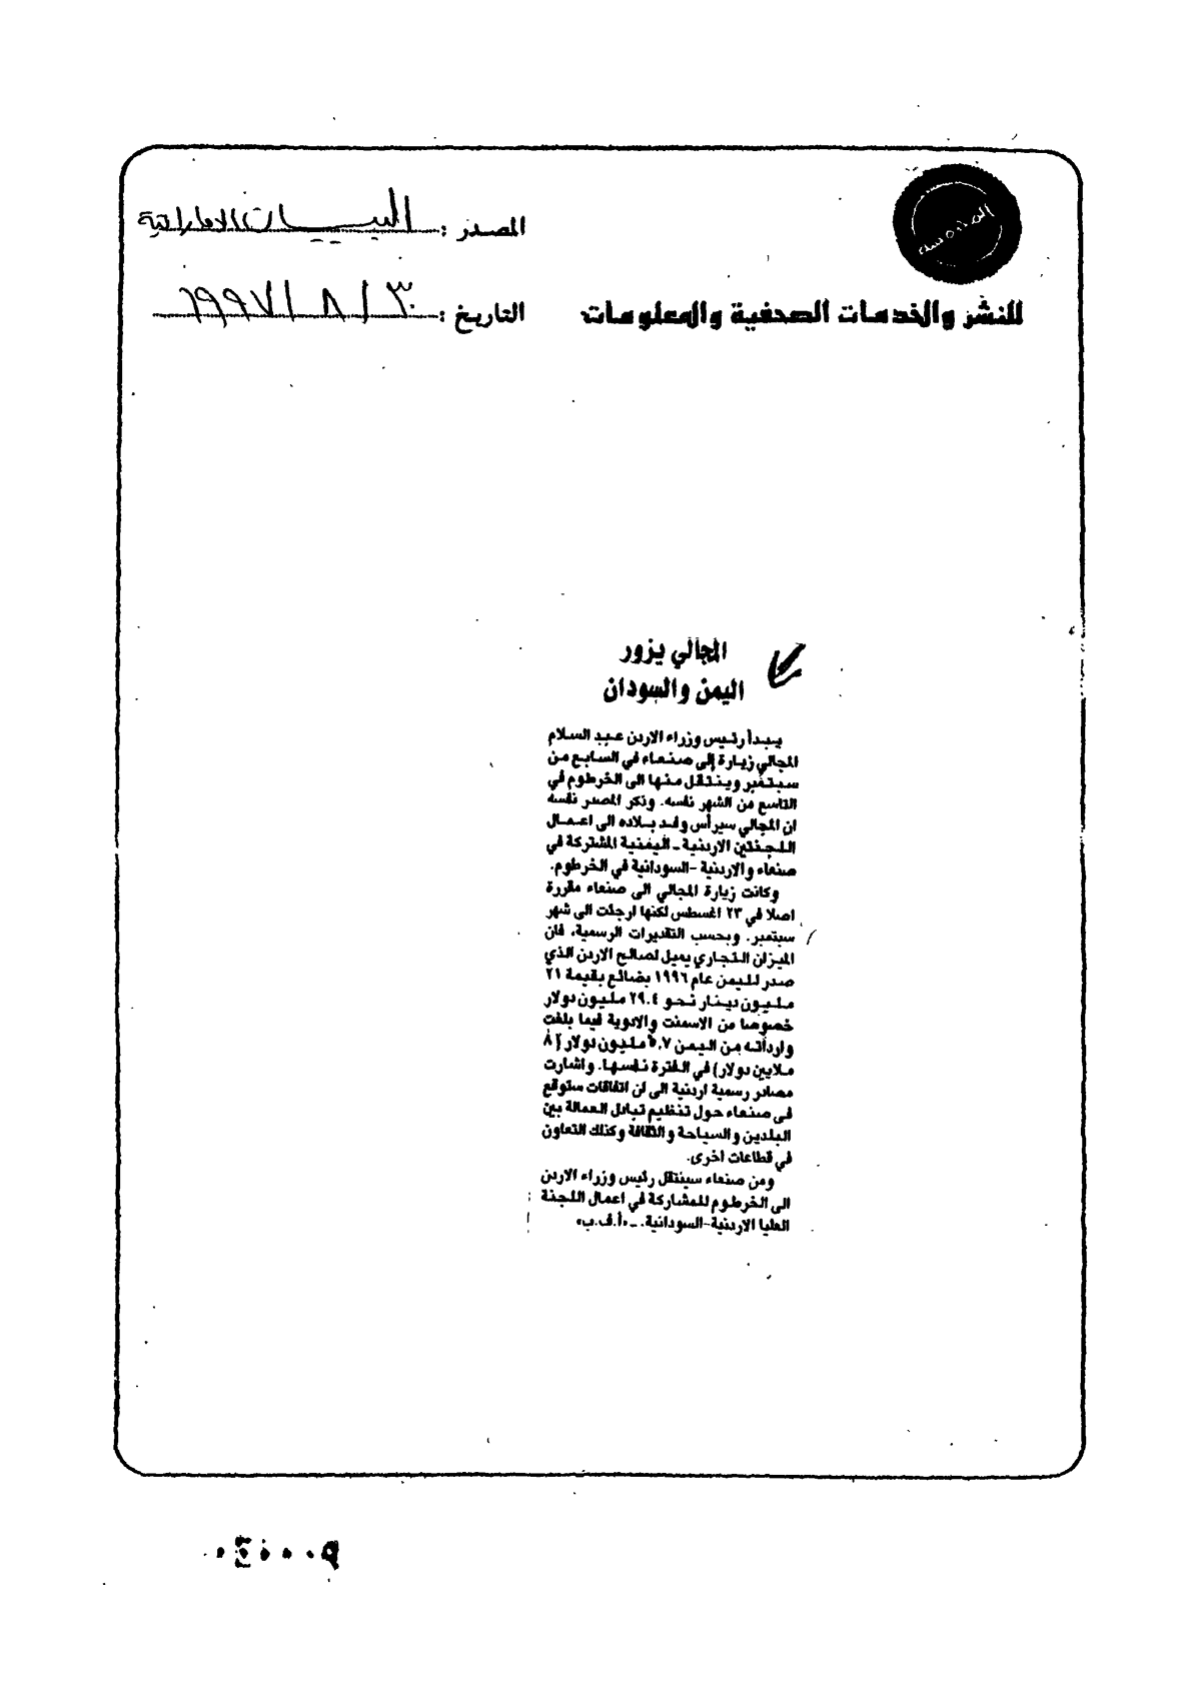 المصدر : البيان الاماراتية
للنشر والخدمات الصحفية والمعلومات
التاريخ : ٣٠ / ٨ / ١٩٩٧
المجالي يزور
اليمن والسودان
يبدأ رئيس وزراء الاردن عبد السلام
المجالي زيارة إلى صنعاء في السابع من
سبتمبر وينتقل منها الى الخرطوم في
التاسع من الشهر نفسه. وذكر المصدر نفسه
ان المجالي سيرأس وفد بلاده الى اعمال
اللجنتين الاردنية ـ اليمنية المشتركة في
صنعاء والاردنية -السودانية في الخرطوم.
وكانت زيارة المجالي الى صنعاء مقررة
اصلا في ٢٣ اغسطس لكنها ارجئت الى شهر
سبتمبر. وبحسب التقديرات الرسمية، فان
الميزان التجاري يميل لصالح الاردن الذي
صدر لليمن عام ١٩٩٦ بضائع بقيمة ٢١
مليون دينار نحو ٢٩.٤ مليون دولار
خصوصا من الاسمنت والادوية فيما بلغت
وارداته من اليمن ٥.٧ مليون دولار (٨
ملايين دولار) في الفترة نفسها. واشارت
مصادر رسمية اردنية الى ان اتفاقات ستوقع
في صنعاء حول تنظيم تبادل العمالة بين
البلدين والسياحة والثقافة وكذلك التعاون
في قطاعات اخرى.
ومن صنعاء سينتقل رئيس وزراء الاردن
الى الخرطوم للمشاركة في اعمال اللجنة
العليا الاردنية-السودانية. ـ «أ.ف.ب»